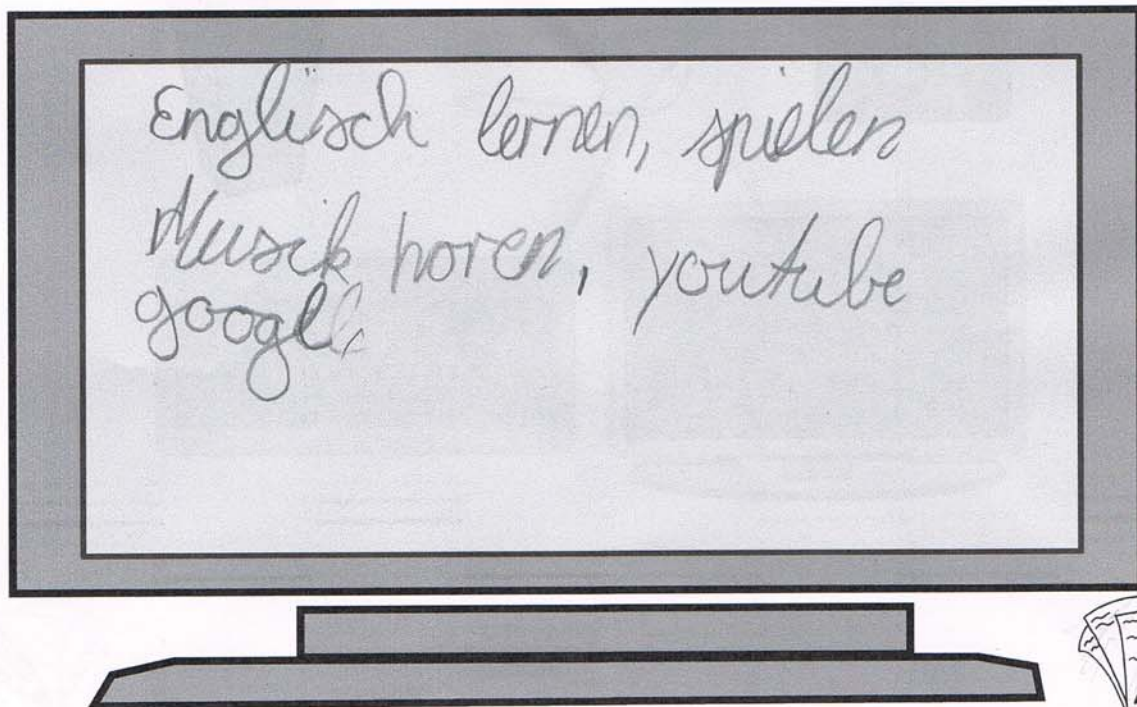 Englisch lernen, spielen
Musik horen, youtube
google